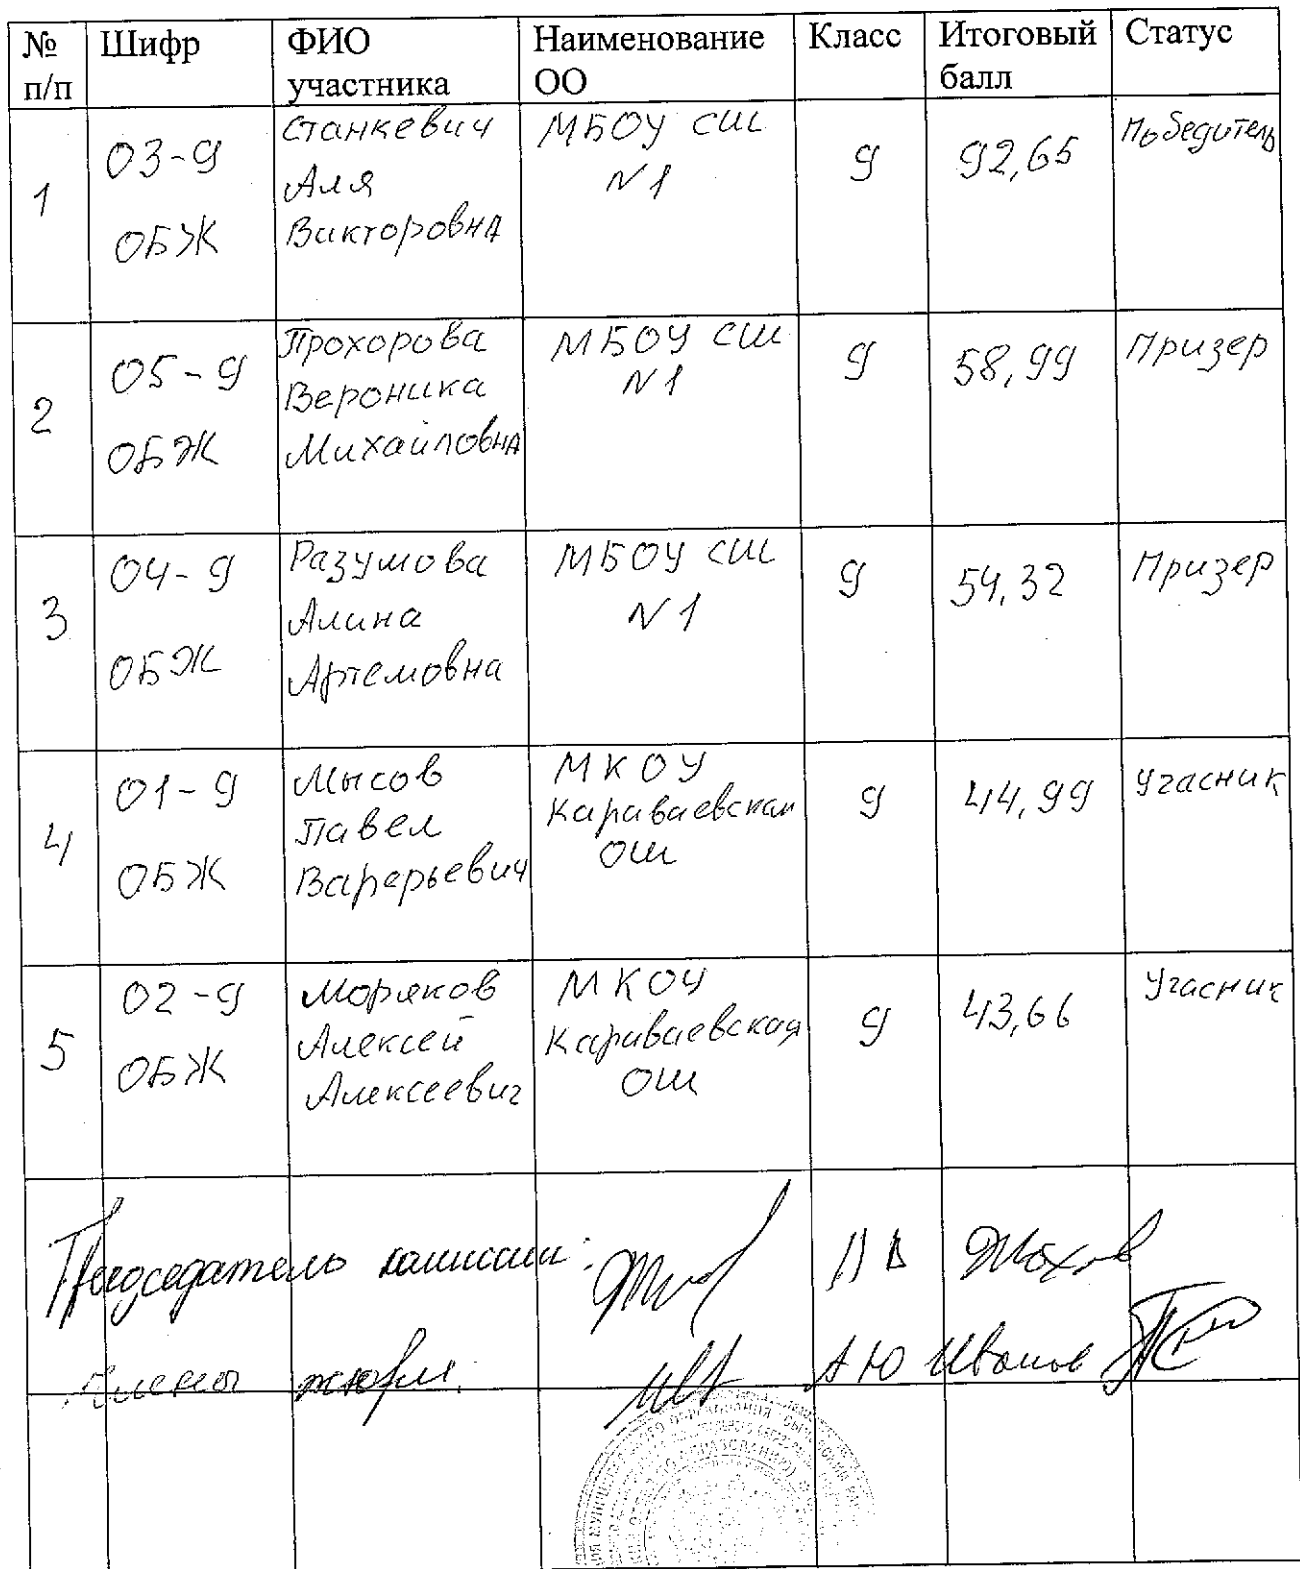 № п/п Шифр ФИО участника Наименование ОО Класс Итоговый балл Статус
1 03-9 ОБЖ Станкевич Аля Викторовна МБОУ СШ N1 9 92,65 Победитель
2 05-9 ОБЖ Прохорова Вероника Михайловна МБОУ СШ N1 9 58,99 Призер
3 04-9 ОБЖ Разумова Алина Артемовна МБОУ СШ N1 9 54,32 Призер
4 01-9 ОБЖ Мысов Павел Варерьевич МКОУ Караваевская ОШ 9 44,99 Учасник
5 02-9 ОБЖ Моряков Алексей Алексеевич МКОУ Караваевская ОШ 9 43,66 Учасник
Председатель комиссии:
Члены жюри: А Ю Иванов